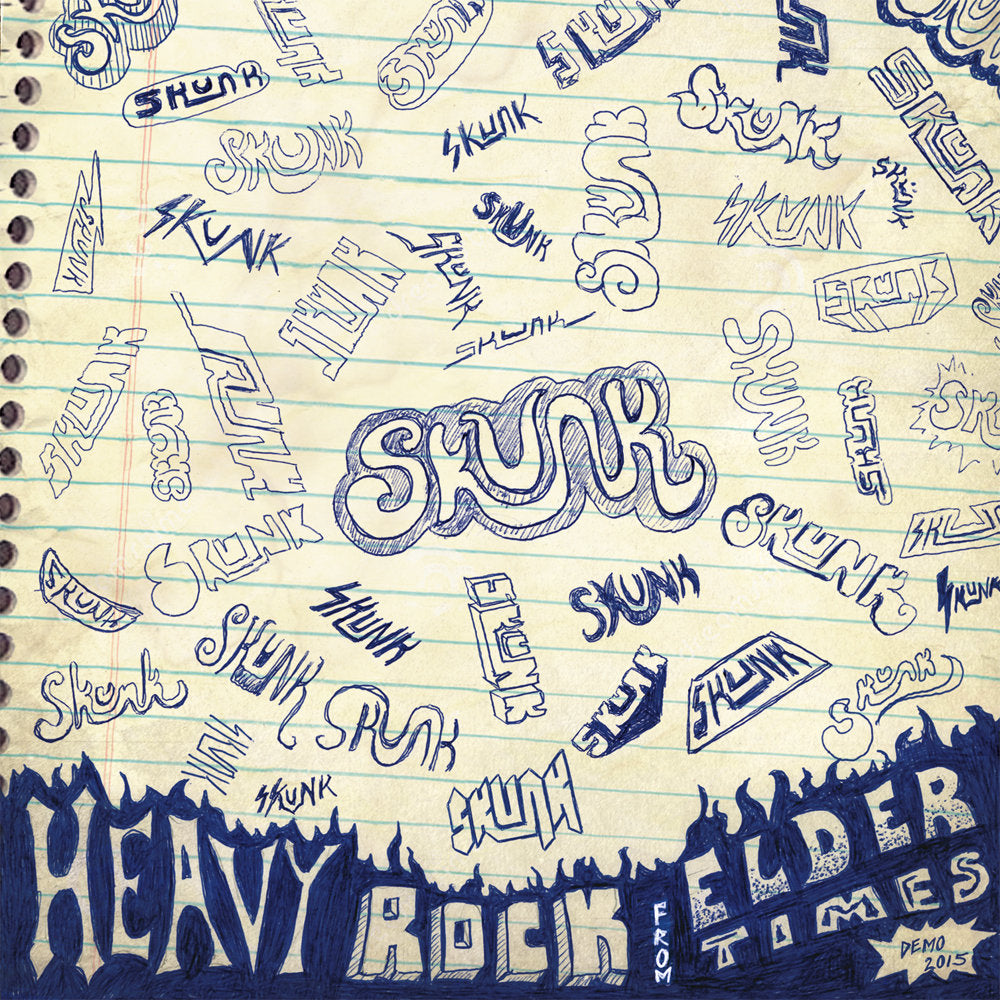 SK
SKUNK
SKUNK
SKUNK
UNK
SKUNK
SKUNK
SKUNK
SKUNK
SKUNK
SKUNK
SKÜNK
SKUNK
SKUNK
SKUNK
SKUNK
SKUNK
SKUNK
SKUNK
SKUNK
SKUNK
SKUNK
SKUNK
SKUNK
SKUNK
SKUNK
SK
SKUNK
SKUNK
SKUNK
SKUN
SKUNK
SKUNK
SKUNK
SKUNK
SKUNK
SKUNK
Skunk
SKUNK
SKUNK
SKUNK
SKUNK
SKUNK
SKUNK
SKUNK
HEAVY ROCK FROM ELDER TIMES
DEMO
2015